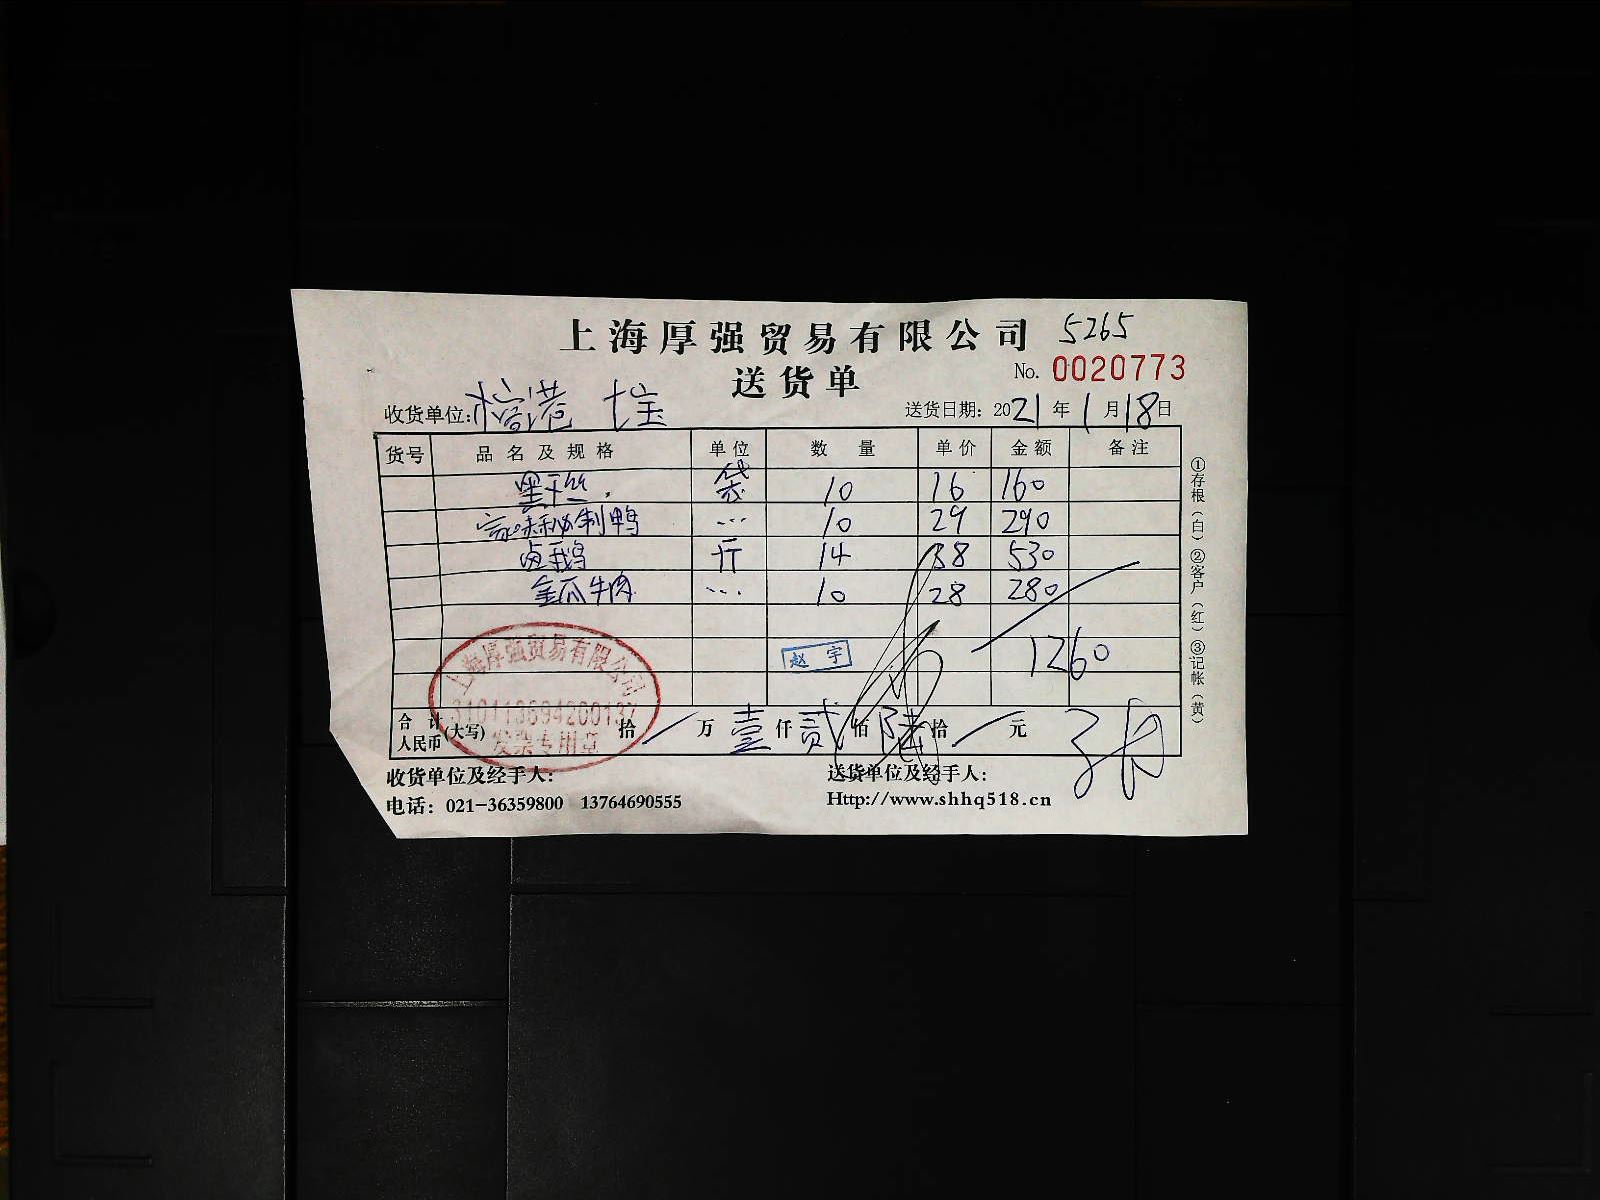 上海厚强贸易有限公司 5265
送货单 No. 0020773
收货单位: 送货日期: 2021年1月18日
货号 品名及规格 单位 数量 单价 金额 备注
黑干丝 袋 10 16 160
秘制鸭 ... 10 29 290
卤鹅 斤 14 38 530
金瓜牛肉 ... 10 28 280
上海厚强贸易有限公司
发票专用章
赵宇
1260
合计人民币(大写) 拾 万 壹仟 贰佰 陆拾 元
收货单位及经手人: 送货单位及经手人:
电话: 021-36359800 13764690555 Http://www.shhq518.cn
①存根(白)②客户(红)③记帐(黄)